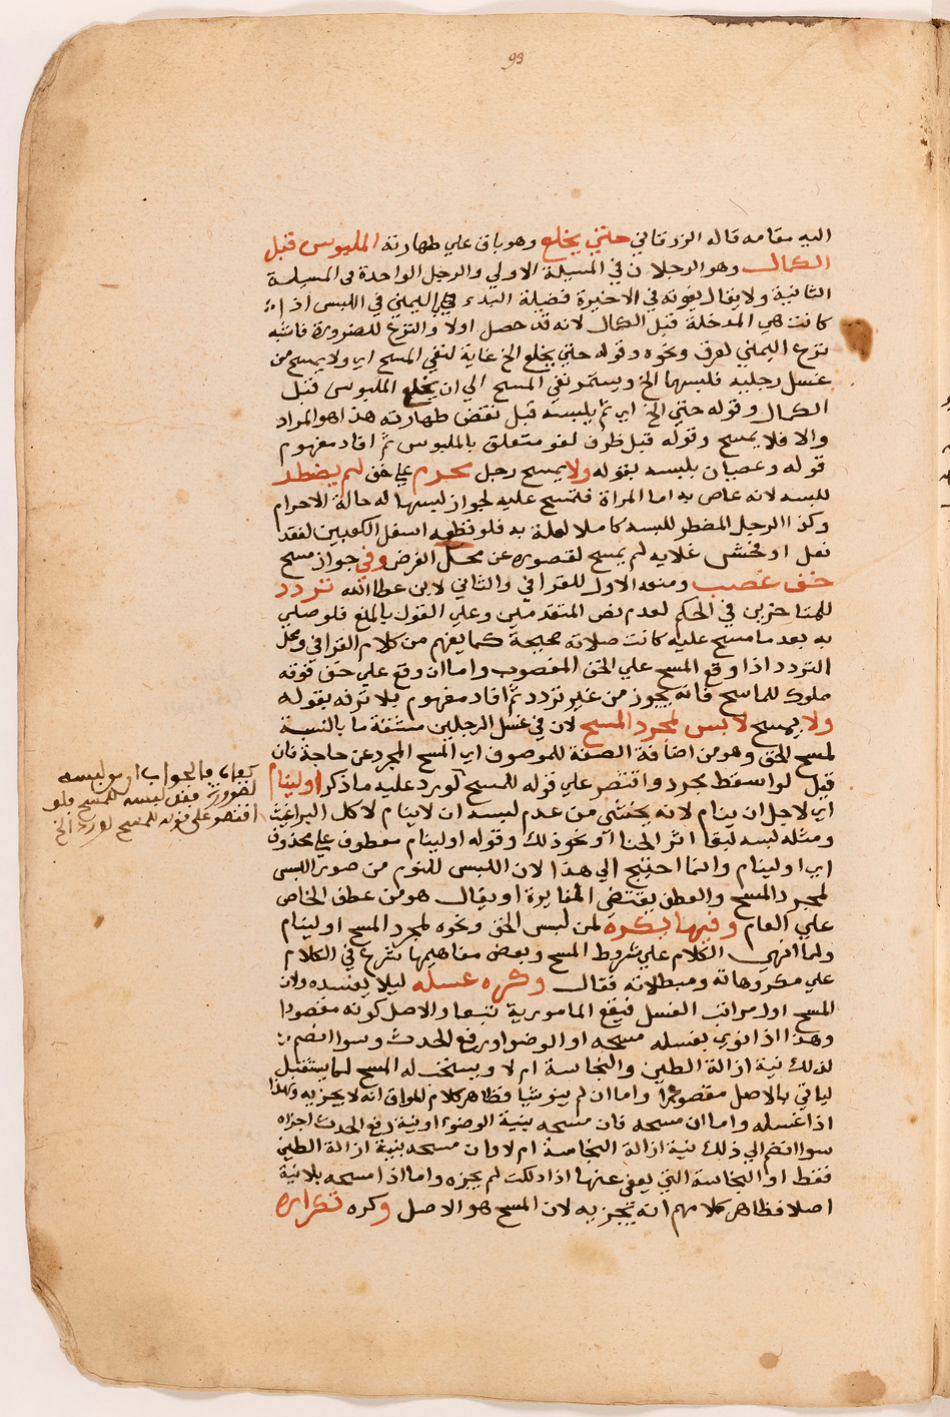 93
اليه مقامه قاله الزرقاني حتى يخلع وهو باق علي طهارته الملبوس قبل
الكمال وهو الرجلان في المسيلة الاولي والرجل الواحدة في المسيلة
الثانية ولا يقال يفوته في الاخيرة فضيلة البدء باليمني في اللبس اذا
كانت هي المدخلة قبل الكمال لانه قد حصل اولا والنزع للضرورة فاشبه
نزع اليمني لعرق ونحوه وقوله حتي يخلع الخ غاية لنفي المسح اي ولا يمسح من
غسل رجليه فلبسها الخ ويستمر نفي المسح الي ان يخلع الملبوس قبل
الكمال وقوله حتي الخ اي ثم يلبسه قبل نقض طهارته هذا هو المراد
والا فلا يمسح وقوله قبل ظرف لغو متعلق بالملبوس ثم افاد مفهوم
قوله وعصيان بلبسه بقوله ولا يمسح رجل محرم علي خف لم يضطر
للبسه لانه عاص به اما المراة فتمسح عليه لجواز لبسها له حالة الاحرام
وكذا الرجل المضطر للبسه كاملا لعلة به فلو قطعه اسفل الكعبين لفقد
نعل او فحش غلايه لم يمسح لقصوره عن محل الفرض وفي جواز مسح
خف غصب ومنعه الاول للقرافي والثاني لابن عطا الله تردد
للمتاخرين في الحكم لعدم نص المتقدمين وعلي القول بالمنع فلو صلي
به بعد ما مسح عليه كانت صلاته صحيحة كما يفهم من كلام القرافي ومحل
التردد اذا وقع المسح علي الخف المغصوب واما ان وقع علي خف فوقه
ملوك للماسح فانه يجوز من غير تردد ثم افاد مفهوم بلا ترفه بقوله
ولا يمسح لابس لمجرد المسح لان في غسل الرجلين مشقة ما بالنسبة
لمسح الخف وهو من اضافة الصفة للموصوف اي المسح المجرد عن حاجة فان
قيل لو اسقط مجرد واقتصر علي قوله للمسح لورد عليه ما ذكر او لينام
اي لاجل ان ينام لانه يخشي من عدم لبسه ان لا ينام لاكل البراغيث
ومثله لبسه لبقا اثر الحنا او نحو ذلك وقوله او لينام معطوف علي محذوف
اي او لينام وانما احتيج الي هذا لان اللبس للنوم من صور اللبس
لمجرد المسح والعطف يقتضي المغايرة او يقال هو من عطف الخاص
علي العام وفيها يكره لمن لبس الخف ونحوه لمجرد المسح او لينام
ولما انهي الكلام علي شروط المسح وبعض مفاهيمها شرع في الكلام
علي مكروهاته ومبطلاته فقال وكره غسله ليلا يفسده ولان
المسح اول مراتب الغسل فيقع المامور به تبعا والاصل كونه مقصودا
وهذا اذا نوي بغسله مسحه او الوضوا ورفع الحدث وسوا انضم
لذلك نية ازالة الطين والنجاسة ام لا ويستحب له المسح لما يستقبل
لياتي بالاصل مقصودا واما ان لم ينو شيا فظاهر كلام المواق انه لا يجزيه وهذا
اذا غسله واما ان مسحه فان مسحه بنية الوضوء او نية رفع الحدث اجزاه
سوا انضم الي ذلك نية ازالة النجاسة ام لا وان مسحه بنية ازالة الطين
فقط او النجاسة التي يعفي عنها اذا دلكت لم يجزه واما اذا مسحه بلا نية
اصلا فظاهر كلامهم انه يجزيه لان المسح هو الاصل وكره تكراره
لضرورة فقد لبسه للمسح فلو
اقتصر علي قوله للمسح لورد الخ